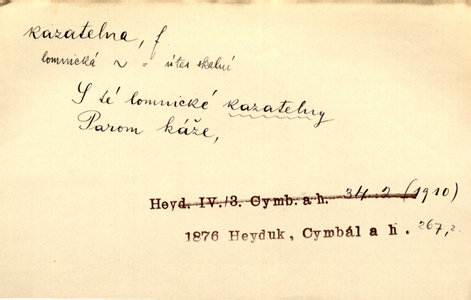 kazatelna, f
lomnická ~ = útes skalní
S té lomnické kazatelny
Parom káže,
Heyd. IV./3. Cymb. a h. 34.2 (1910)
1876 Heyduk, Cymbál a h. 267,2